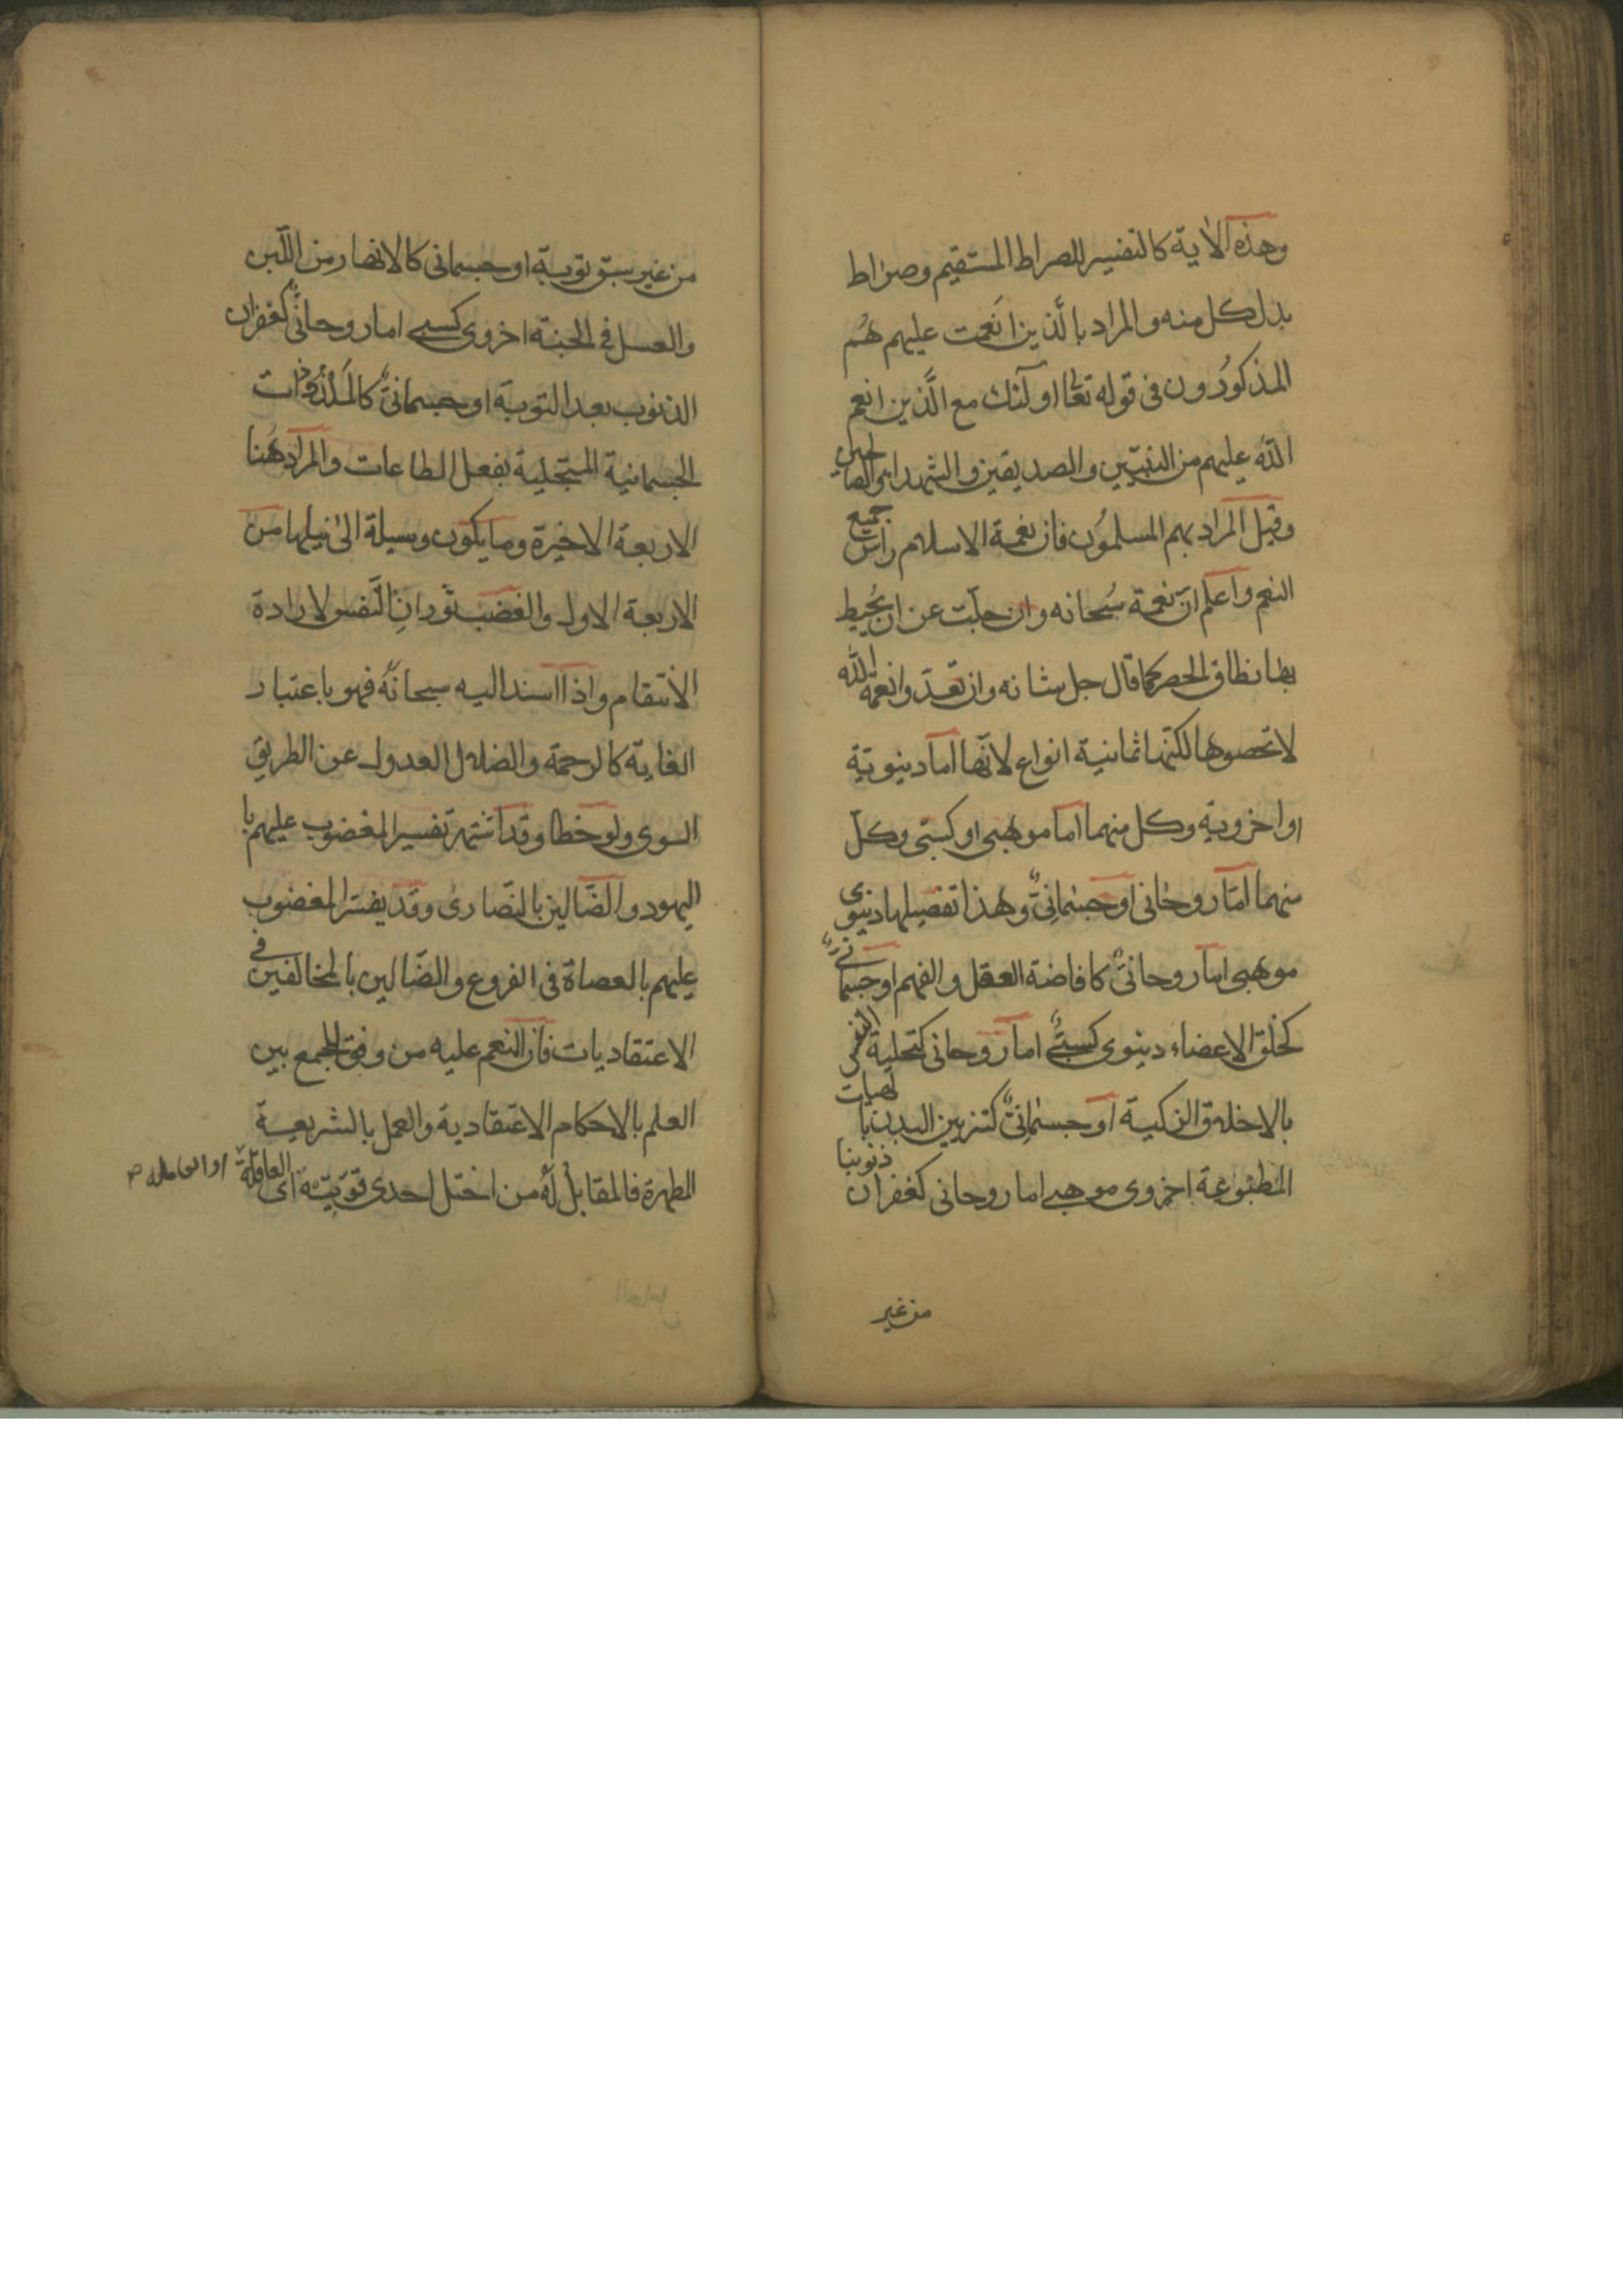 وهذه الاية كالتفسير للصراط المستقيم وصراط
بدل كل منه والمراد بالَّذين انَعمت عليهم هُم
المذكورُون فى قوله تعالى اولٓئك مع الَّذين انعم
اللّه عليهم من النبيّين والصديقين والشهداء والصالحين
وقيل المراد بهم المسلموُن فان نعمة الاسلام راس جميع
النعم واعلم انّ نعمة سُبحانه وان جلّت عن ان يُحيط
بها نطاق الحصر كما قال جل شانه وان تعدّوا نعمة اللّه
لا تحصوها لكنّها ثمانية انواع لانّها اما دينويّة
او اخروية وكل منهما اما موهبى او كسبّى وكلّ
منهما امّا روحانى او جسمٰانِىٌّ وهذا تفصيلها دنيوى
موهبى اما روحانىٌّ كافاضة العقل والفهم او جسمانىٌّ
كخلق الاعضاء دينوى كسبىٌّ اما روحانى كتحلية النفس
بالاخلاق الزكية او جسمٰانِىٌّ كتزيين البدن بالهيات
المطبوعة اخروى موهبى اما روحانى كغفران ذنوبنا
من غير
من غير سبق توبة او جسمانى كالانهار من اللّبن
والعسل فى الجنة اخروى كسبى اما روحانىٌّ كغفران
الذنوب بعد التوبة او جسمانىٌّ كالملذوذات
الجسمانية المستجلية بفعل الطاعات والمراد هُنا
الاربعة الاخيرة وما يكون وسيلة الىٰ نيلها من
الاربعة الاول والغضب ثورانِ النّفس لارادة
الانتقام واذا اسند اليه سبحانهُ فهو باعتبار
الغاية كالرحمة والضلال العدول عن الطريق
السوى ولو خطا وقد اشتهر تفسير المغضوب عليهم با
اليهود والضّالين بالنّصارىٰ وقد يفسّر المغضوب
عليهم بالعصاة فى الفروع والضّالين بالمخالفين فى
الاعتقاديات فان المنعم عليه من وفق للجمع بين
العلم بالاحكام الاعتقادية والعمل بالشريعة
المطهرة فالمقابل لهُ من اختل احدى قوّتيه اى العاقلة او العاملة